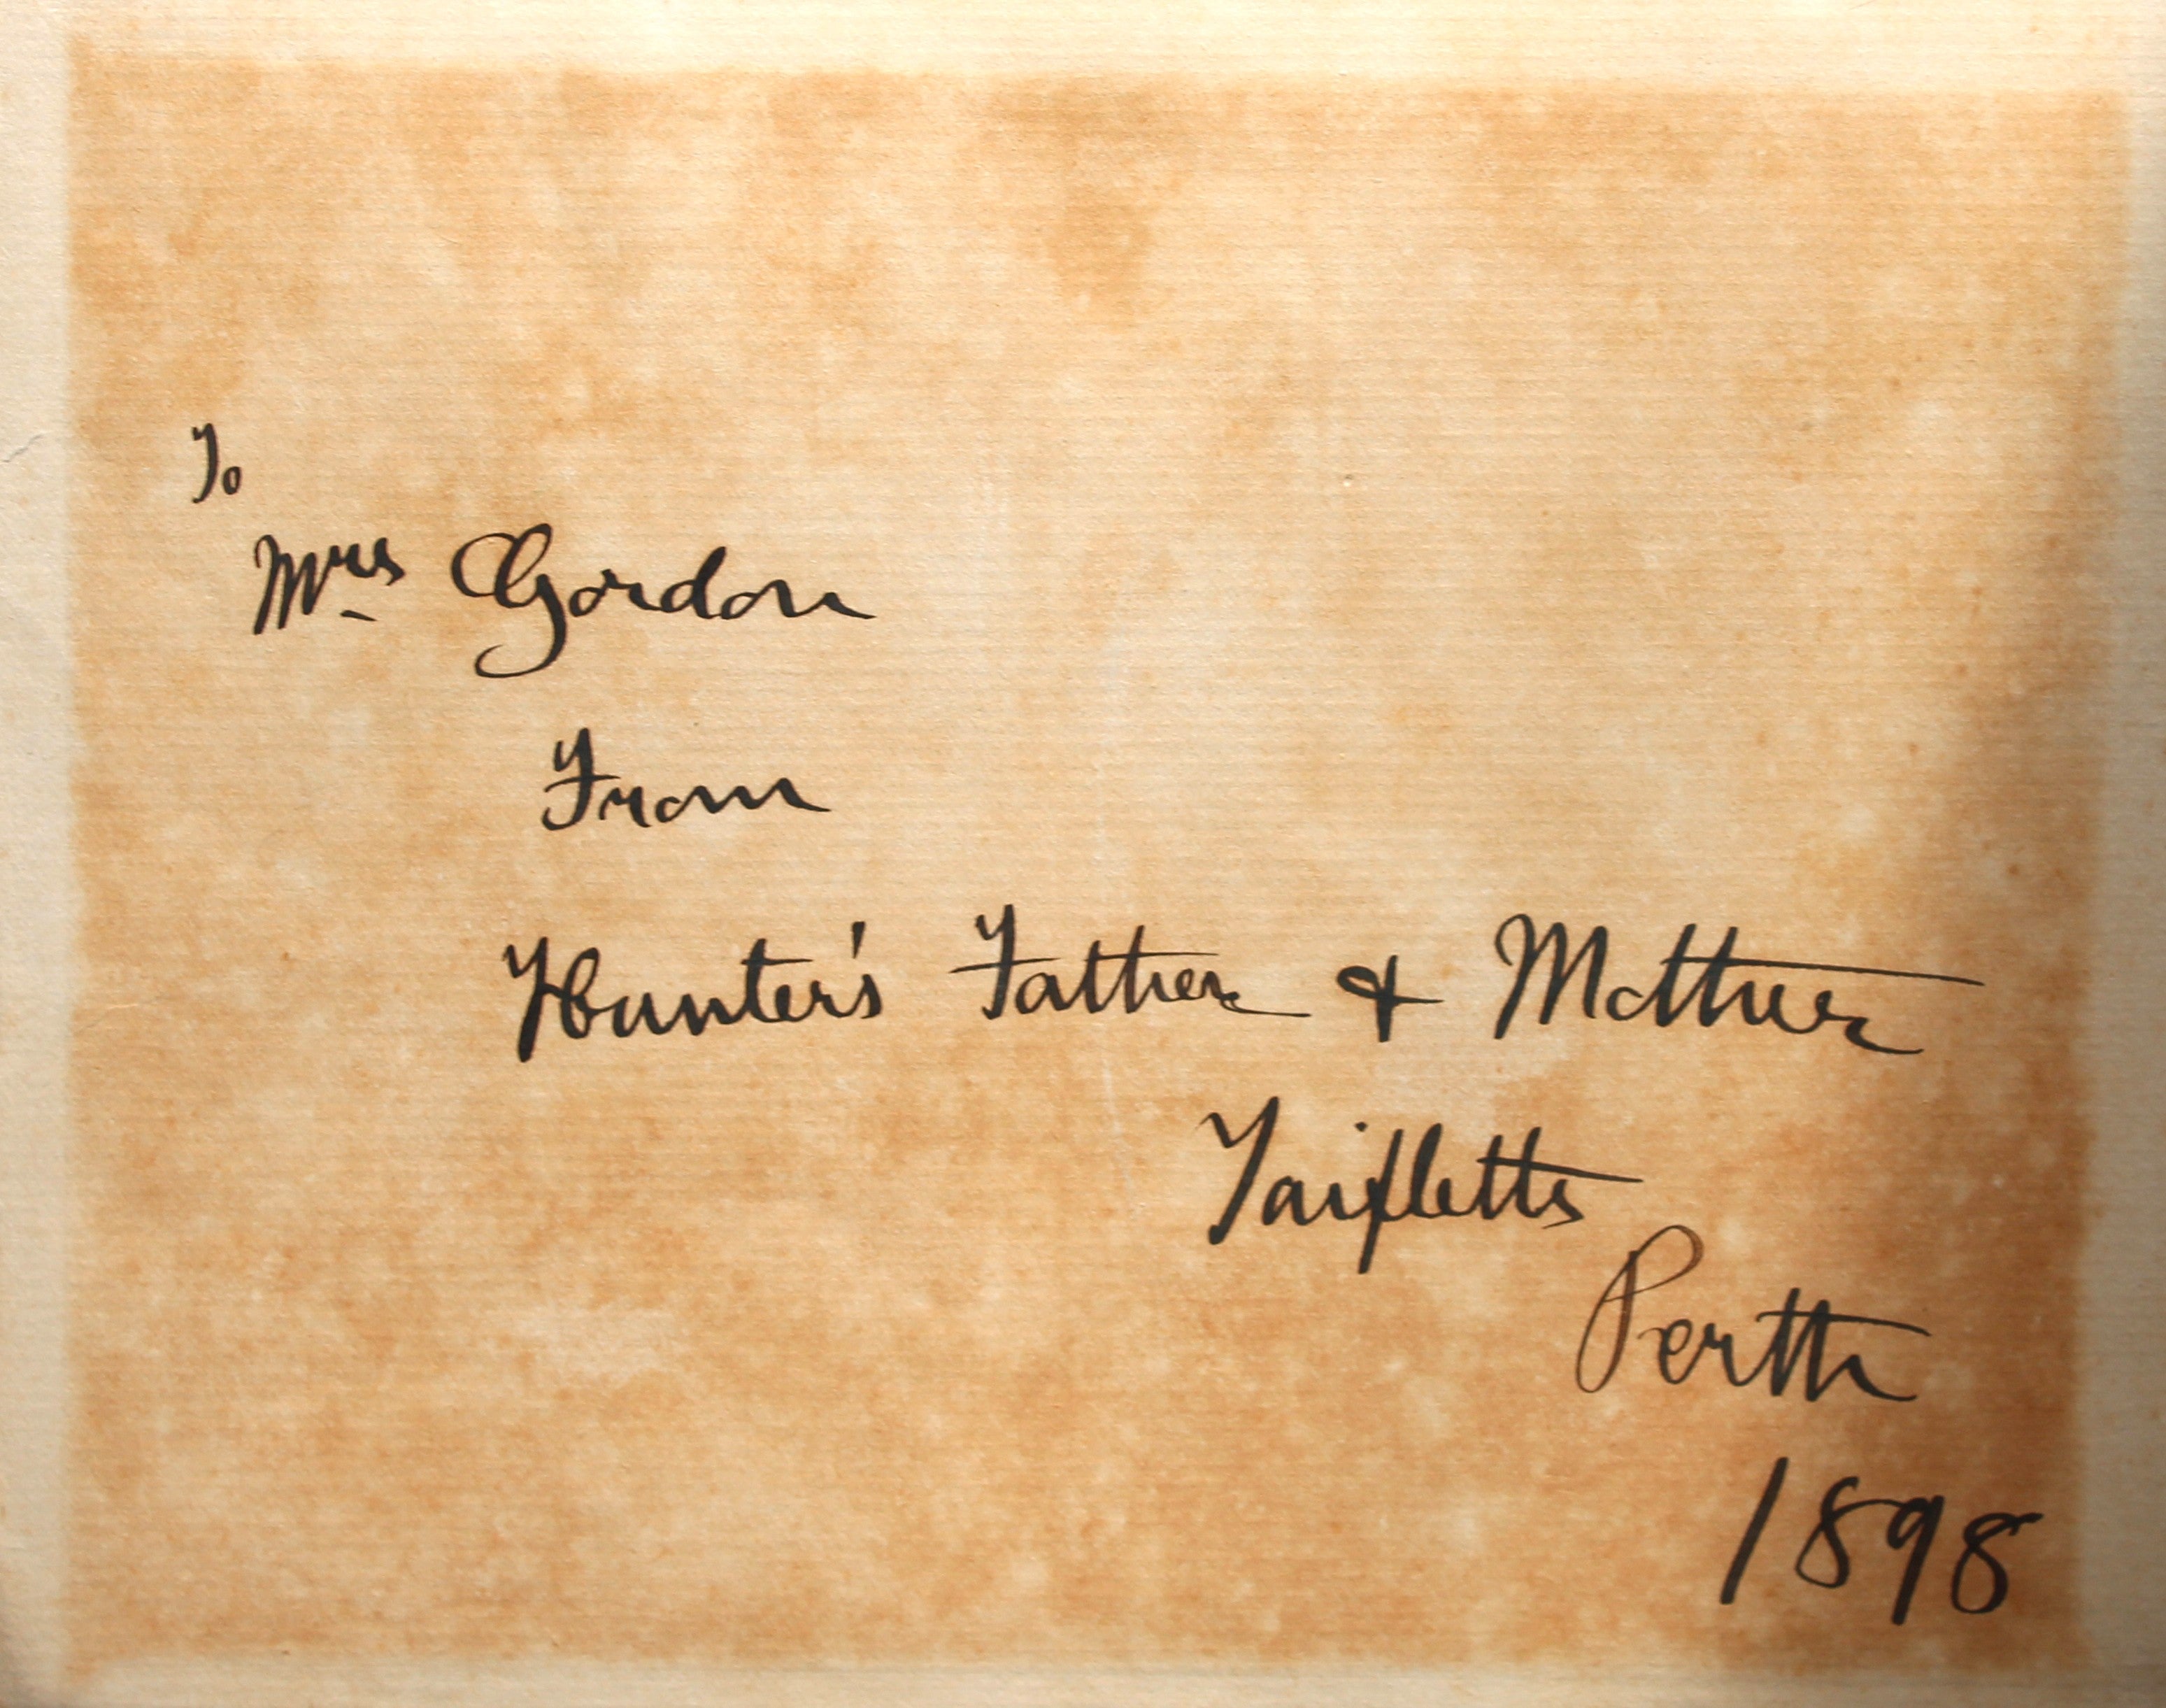 To
Mrs Gordon
From
Hunter's Father & Mother
Taifletts
Perth
1898